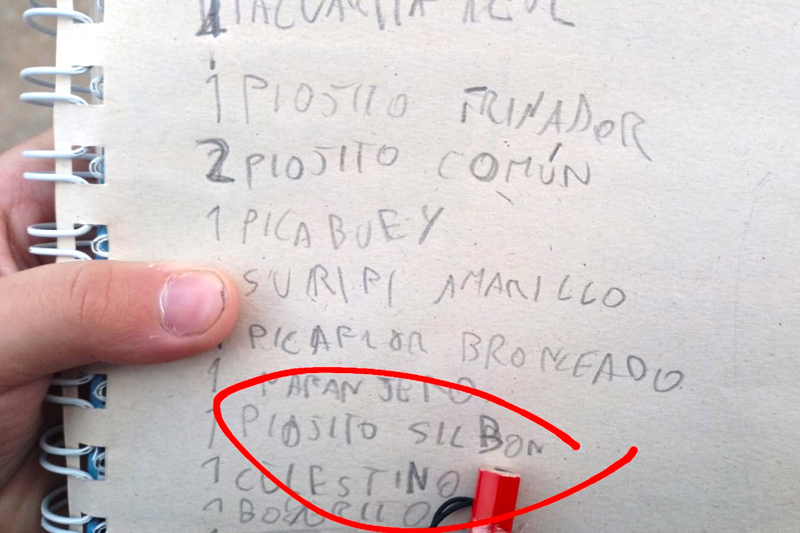 TACUARITA AZUL
1 PIOJITO TRINADOR
2 PIOJITO COMÚN
1 PICABUEY
SURIRI AMARILLO
PICAFLOR BRONCEADO
1 NARANJERO
1 PIOJITO SILBON
1 CELESTINO
1 BOYERITO